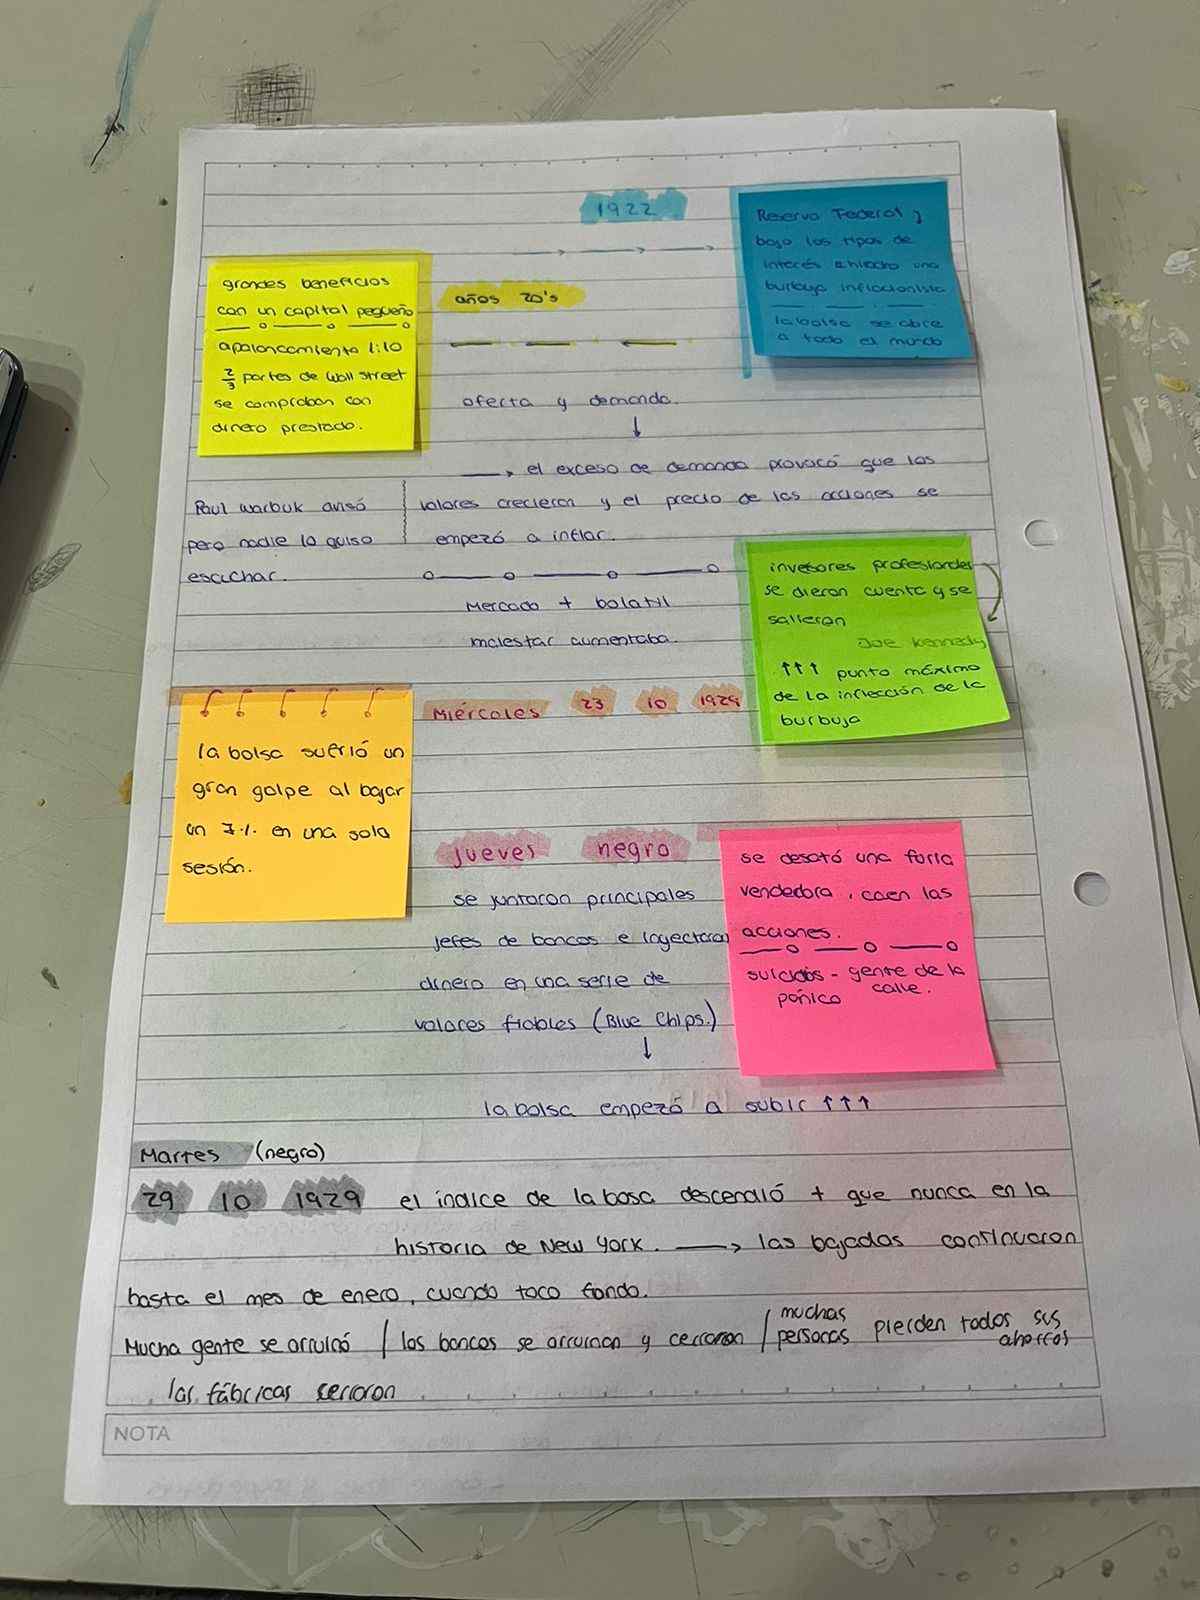 1922
Reserva Federal
bajo los tipos de
interés
burbuja inflacionista
la bolsa se abre
a todo el mundo
grandes beneficios
con un capital pequeño
apalancamiento 1:10
2/3 partes de Wall Street
se compraban con
dinero prestado.
años 20's
oferta y demanda.
↓
→ el exceso de demanda provocó que los
valores crecieran y el precio de las acciones se
empezó a inflar.
Paul Warbuk avisó
pero nadie lo quiso
escuchar.
Mercado + bolatil
malestar aumentaba.
inversores profesionales
se dieron cuenta y se
salieron
Joe Kennedy
↑↑↑ punto máximo
de la inflección de la
burbuja
Miércoles 23 10 1929
la bolsa sufrió un
gran golpe al bajar
un 7% en una sola
sesión.
jueves negro
se juntaron principales
jefes de bancos e inyectaron
dinero en una serie de
valores fiables (Blue Chips.)
↓
la bolsa empezó a subir ↑↑↑
se desató una furia
vendedora, caen las
acciones.
suicidios - gente de la
pánico calle.
Martes (negro)
29 10 1929 el índice de la bosa descendió + que nunca en la
historia de New York. → las bajadas continuaron
hasta el mes de enero, cuando toco fondo.
Mucha gente se arruinó / los bancos se arruinan y cerraron / muchas personas pierden todos sus ahorros
las fábricas cerraron
NOTA